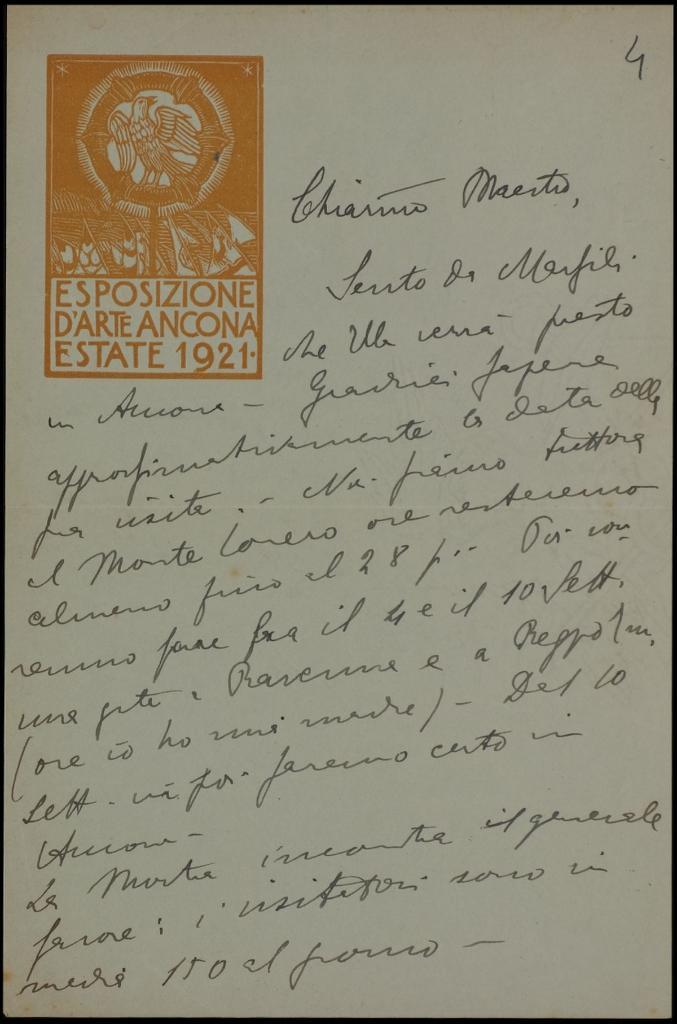 4
ESPOSIZIONE
D'ARTE ANCONA
ESTATE 1921.
Chiar.mo Maestro,
Sento da Marfili
che Ella verrà presto
in Ancona – Gradirei sapere
approssimativamente la data della
sua visita. – Noi siamo tuttora
al Monte Conero ove resteremo
almeno fino al 28 p. – Poi vor-
remmo fare fra il 4 e il 10 Sett.
una gita a Ravenna e a Reggio Em.
(ove io ho mia madre) – Dal 10
Sett. in poi saremo certo in
Ancona –
La Mostra incontra il generale
favore: i visitatori sono in
media 150 al giorno –